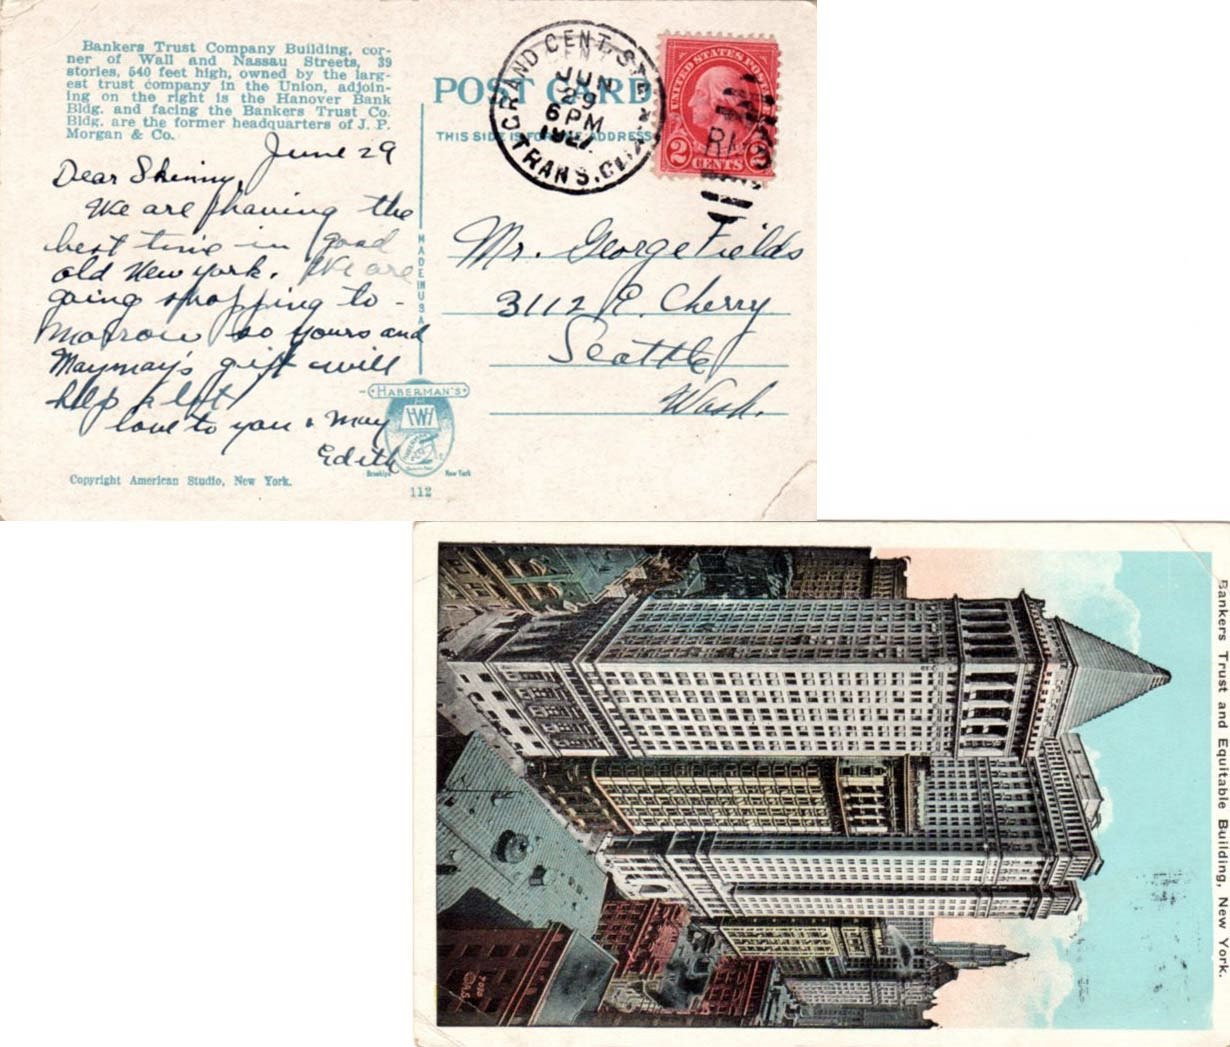 Bankers Trust Company Building, cor-
ner of Wall and Nassau Streets, 39
stories, 540 feet high, owned by the larg-
est trust company in the Union, adjoin-
ing on the right is the Hanover Bank
Bldg. and facing the Bankers Trust Co.
Bldg. are the former headquarters of J. P.
Morgan & Co.
June 29
Dear Skinny,
We are having the
best time in good
old New York. We are
going shopping to-
morrow so yours and
Maymay's gift will
help a lot
love to you & May
Edith
Copyright American Studio, New York.
POST CARD
THIS SIDE IS FOR THE ADDRESS
MADE IN USA
HABERMAN'S
Brooklyn New York
112
GRAND CENT. STA.
JUN
29
6 PM
1927
TRANS. CLK.
UNITED STATES POSTAGE
2 CENTS 2
Mr. George Fields
3112 E. Cherry
Seattle
Wash.
Bankers Trust and Equitable Building, New York.